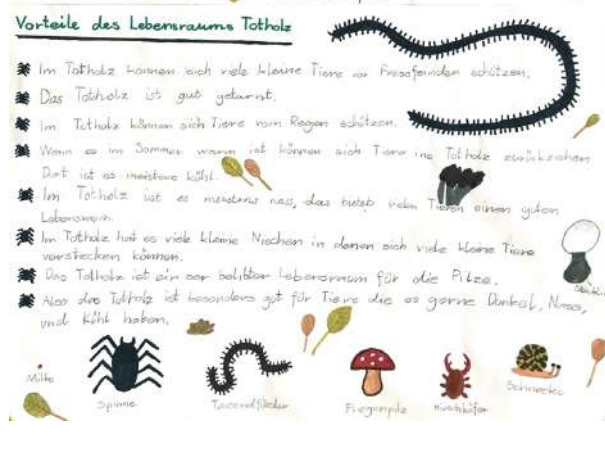 Vorteile des Lebensraums Totholz
Im Totholz können sich viele kleine Tiere vor Fressfeinden schützen.
Das Totholz ist gut getarnt.
Im Totholz können sich Tiere vom Regen schützen.
Wenn es im Sommer warm ist können sich Tiere ins Totholz zurückziehen
Dort ist es meistens kühl.
Im Totholz ist es meistens nass, das bietet vielen Tieren einen guten
Lebensraum.
Im Totholz hat es viele kleine Nischen in denen sich viele kleine Tiere
verstecken können.
Das Totholz ist ein ser belibter Lebensraum für die Pilze.
Also das Totholz ist besonders gut für Tiere die es gerne Dunkel, Nass,
und Kühl haben.
Milbe
Spinne
Tausendfüssler
Fliegenpilz
Hirschkäfer
Schnecke